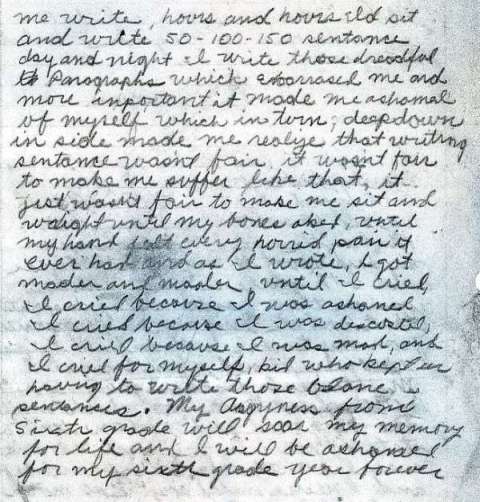 me write, hours and hours I'd sit
and write 50-100-150 sentance
day and night I write those dreadful
Paragraphs which embarrased me and
more inportant it made me ashamed
of myself which in turn; deepdown
in side made me realize that writing
sentance wasn't fair it wasn't fair
to make me suffer like that, it
just wasn't fair to make me sit and
waight until my bones aked, until
my hand felt every horred pain it
ever had and as I wrote, I got
mader and mader, until I cried,
I cried because I was ashamed
I cried because I was descusted,
I cried because I was mad, and
I cried for myself, kid who kept on
having to write those
sentances. My Angryness from
Sixth grade will scar my memory
for life and I will be ashamed
for my sixth grade year forever